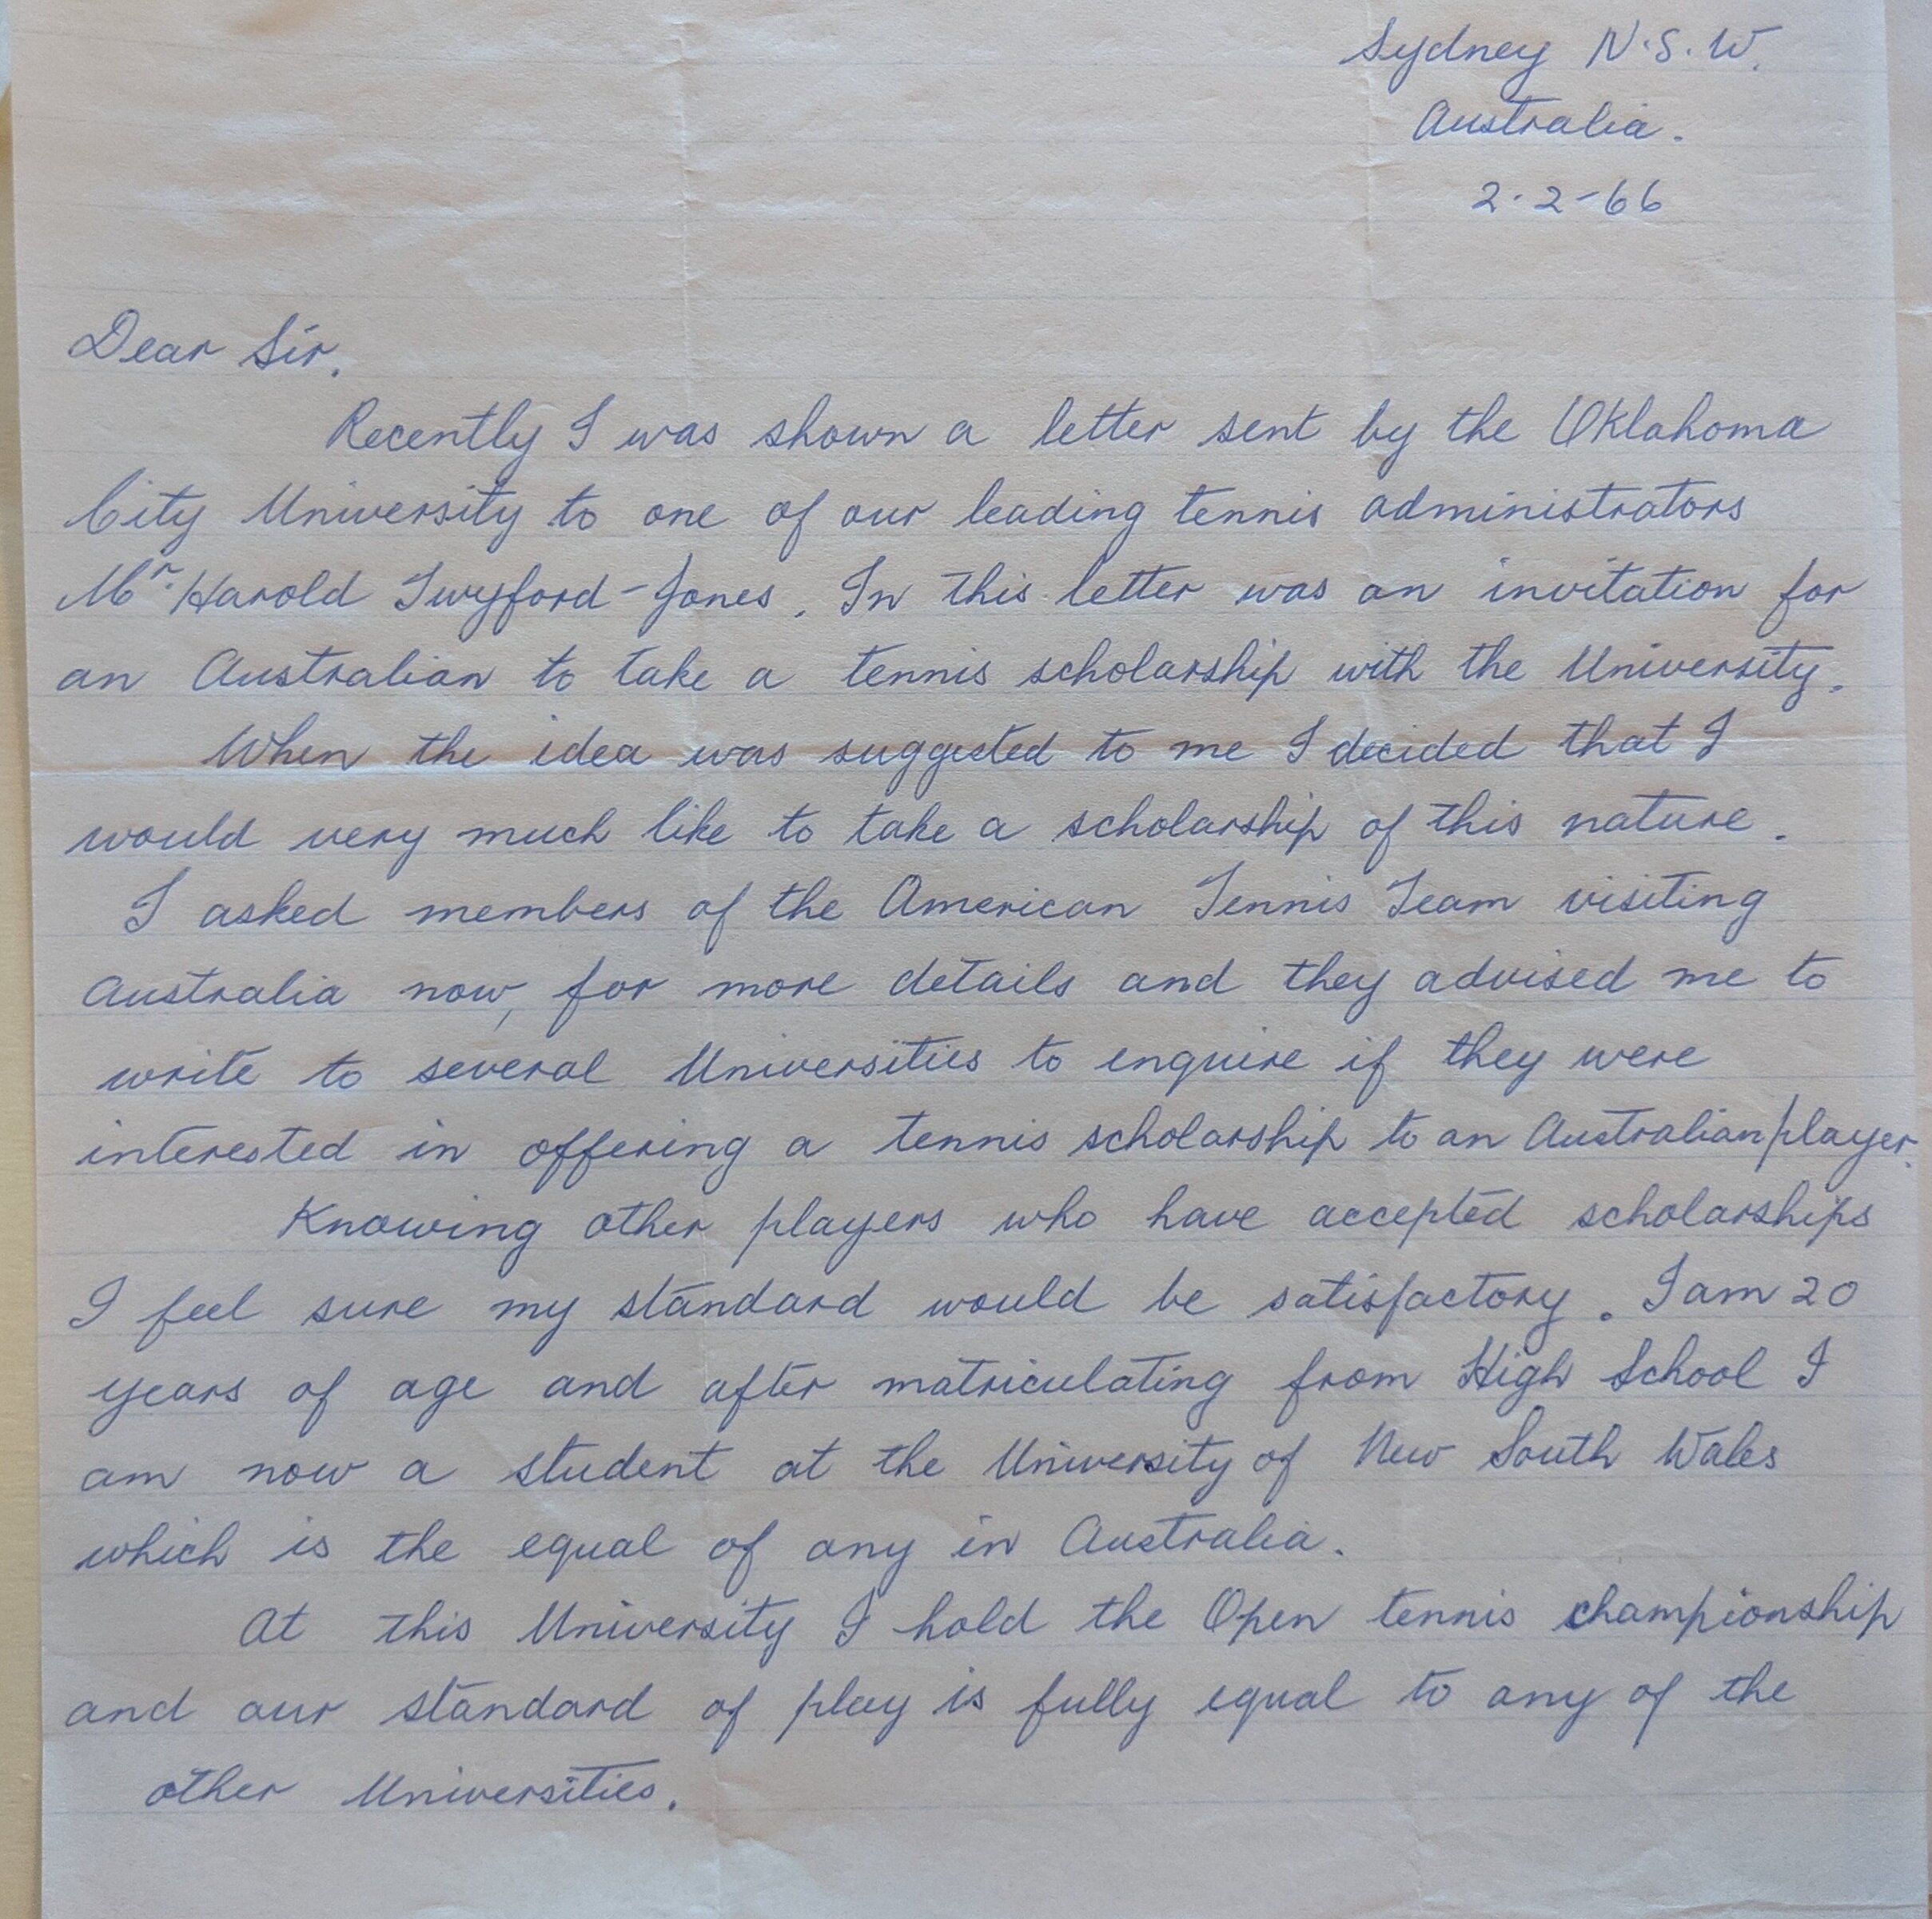 Sydney N.S.W.
Australia.
2-2-66
Dear Sir,
Recently I was shown a letter sent by the Oklahoma
City University to one of our leading tennis administrators
Mr. Harold Twyford-Jones. In this letter was an invitation for
an Australian to take a tennis scholarship with the University.
When the idea was suggested to me I decided that I
would very much like to take a scholarship of this nature.
I asked members of the American Tennis Team visiting
Australia now, for more details and they advised me to
write to several Universities to enquire if they were
interested in offering a tennis scholarship to an Australian player.
Knowing other players who have accepted scholarships
I feel sure my standard would be satisfactory. I am 20
years of age and after matriculating from High School I
am now a student at the University of New South Wales
which is the equal of any in Australia.
At this University I hold the Open tennis championship
and our standard of play is fully equal to any of the
other Universities.